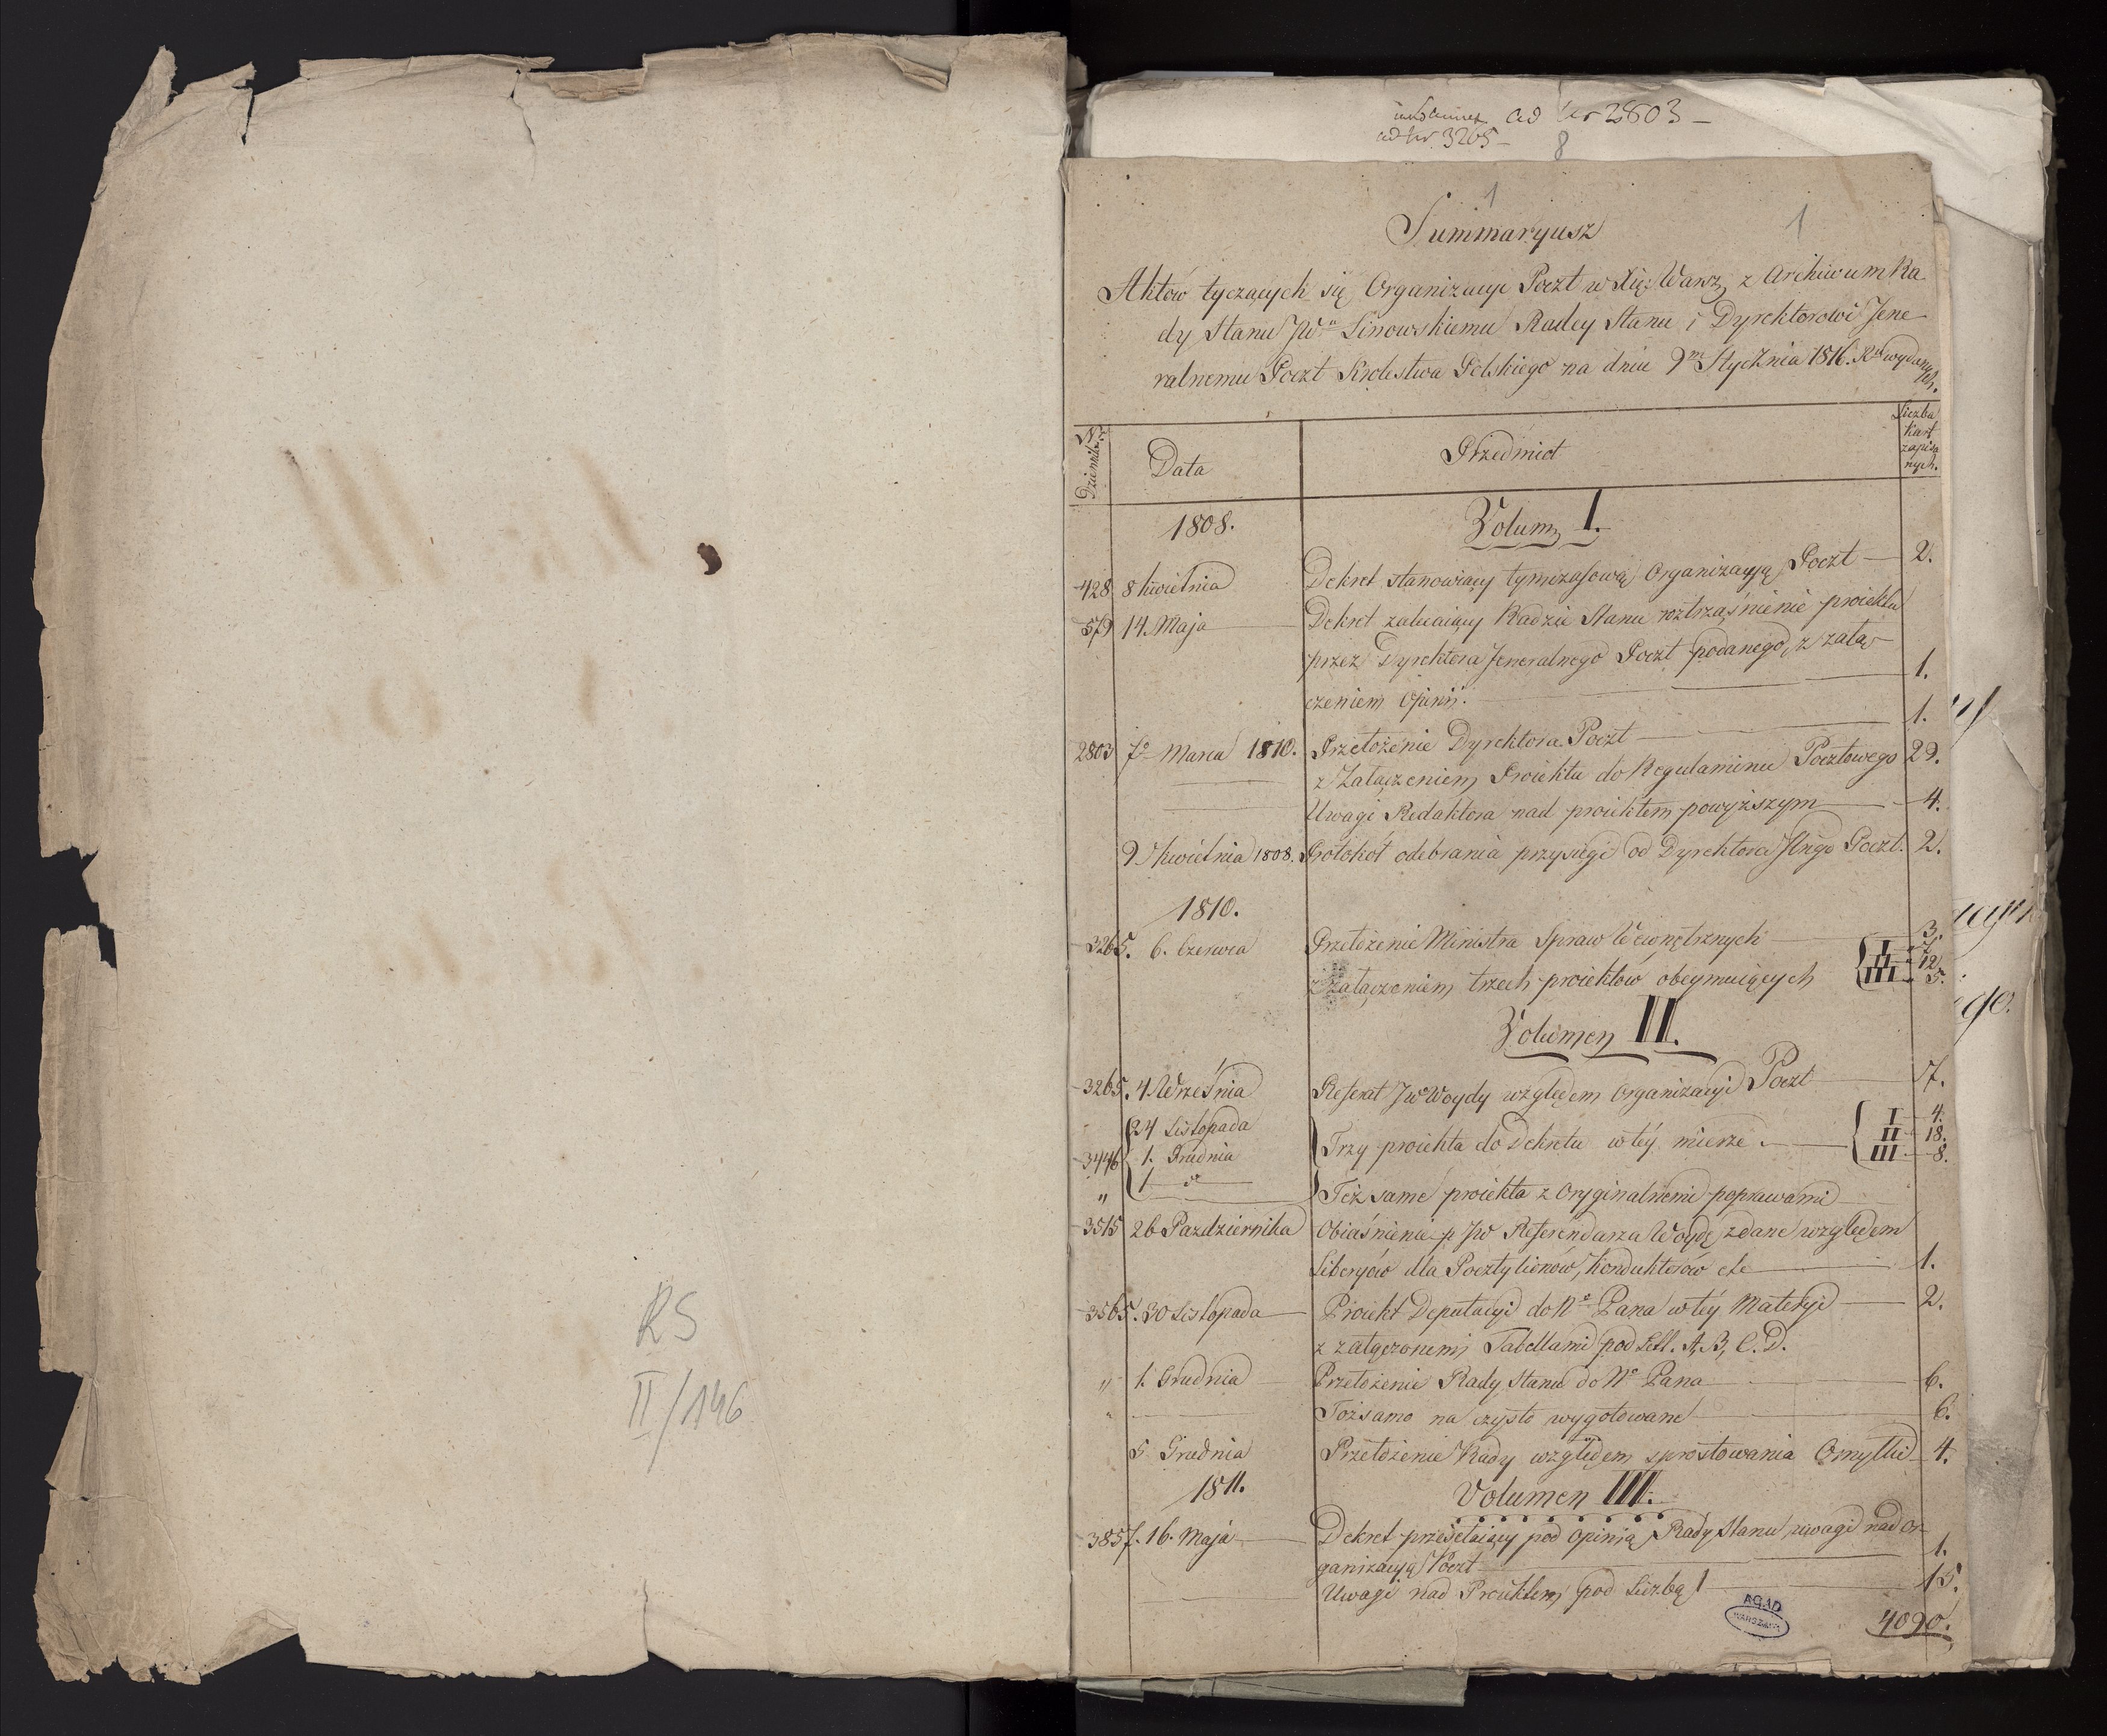 RS
II/146
ad Nr 2803 —
ad Nr. 3265 —
8
1
1
Summaryusz
Aktów tyczących się Organizacyi Poczt w Xię: Warsz z Archiwum Ra
dy Stanu JWu Linowskiemu Radcy Stanu i Dyrektorowi Jene
ralnemu Poczt Krolestwa Polskiego na dniu 9m Stycznia 1816. Ru wydanych.
Nr Dziennika
Data
Przedmiot
Liczba
kart
zapisa
nych.
1808.
Volum I.
428 8 Kwietnia Dekret stanowiący tymczasową Organizacyją Poczt — 2.
579 14. Maja Dekret zalecaiący Radzie Stanu roztrząśnienie proiektu
przez Dyrektora Jeneralnego Poczt podanego, z załą-
czeniem Opinii. 1.
2803 7o Marca 1810. Przełożenie Dyrektora Poczt — 1.
z Załączeniem Proiektu do Regulaminu Pocztowego 29.
Uwagi Redaktora nad proiektem powyższym — 4.
9 Kwietnia 1808. Protokół odebrania przysięgi od Dyrektora Jlngo Poczt. 2.
1810.
3265. 6. Czerwca Przełożenie Ministra Spraw Wewnętrznych 3.
z załączeniem trzech proiektów obeymuiących I — 7.
II — 12.
III — 5.
Volumen II.
3265. 4 Września Referat JW Woydy względem Organizacyi Poczt 7.
24 Listopada
3446 1. Grudnia Trzy proiekta do Dekretu w téy mierze. I — 4.
II — 18.
III — 8.
" 1 — do — Też same proiekta z Oryginalnemi poprawami
3515 26 Pazdziernika Obiaśnienie p. JW Referendarza Woydę zdane względem
Liberyów dla Pocztylionów, Konduktorów etc — 1.
3565. 30 Listopada Proiekt Deputacyi do No Pana w téy Materyi — 2.
z załączonemi Tabellami pod Litt. A, B, C. D.
" 1. Grudnia Przełożenie Rady Stanu do No Pana — 6.
" Tożsamo na czysto wygotowane — 6.
5 Grudnia Przełożenie Rady względem sprostowania Omyłki 4.
1811.
Volumen III.
3857. 16. Maja Dekret przesełaiący pod opinią Rady Stanu uwagi nad or-
ganizacyą Poczt 1.
Uwagi nad Proiektem pod Liczbą 1 — 15.
AGAD
WARSZAWA
4090.